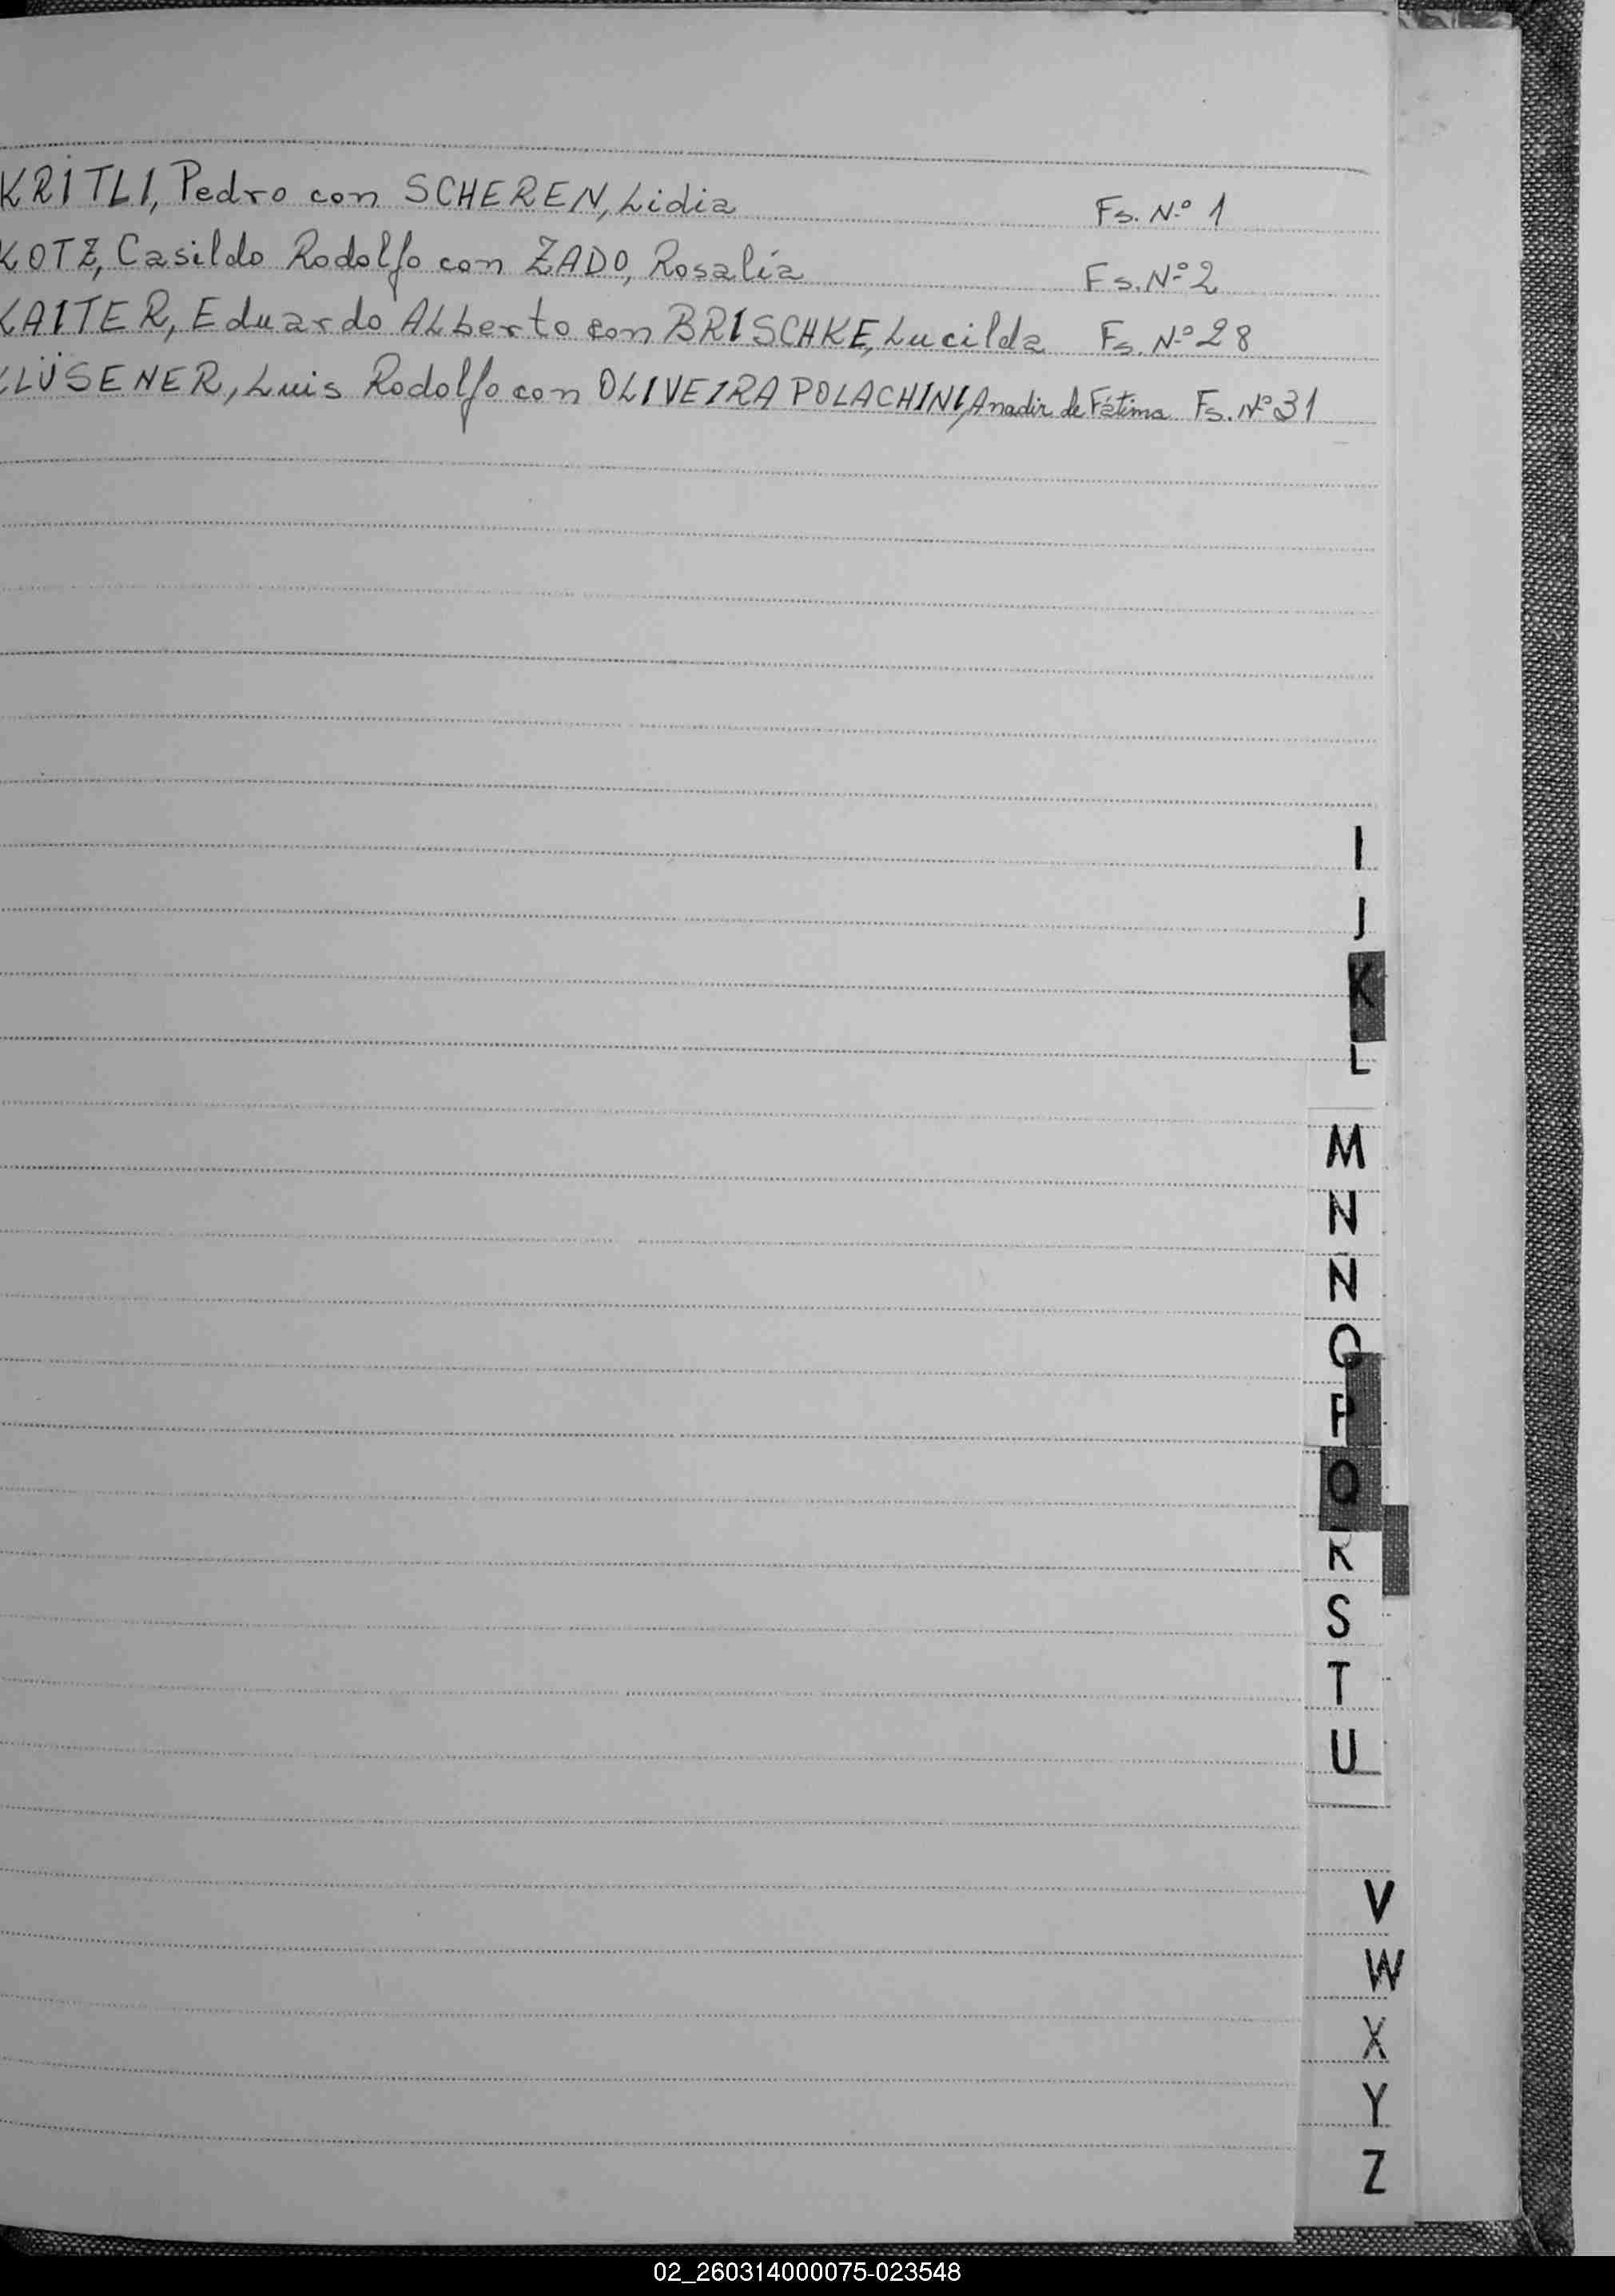 KRITLI, Pedro con SCHEREN, Lidia Fs. Nº 1
KOTZ, Casildo Rodolfo con ZADO, Rosalía Fs. Nº 2
KAITER, Eduardo Alberto con BRISCHKE, Lucilda Fs. Nº 28
KLÜSENER, Luis Rodolfo con OLIVEIRA POLACHINI, Anadir de Fátima Fs. Nº 31
I
J
K
L
M
N
Ñ
O
P
Q
R
S
T
U
V
W
X
Y
Z
02_260314000075-023548